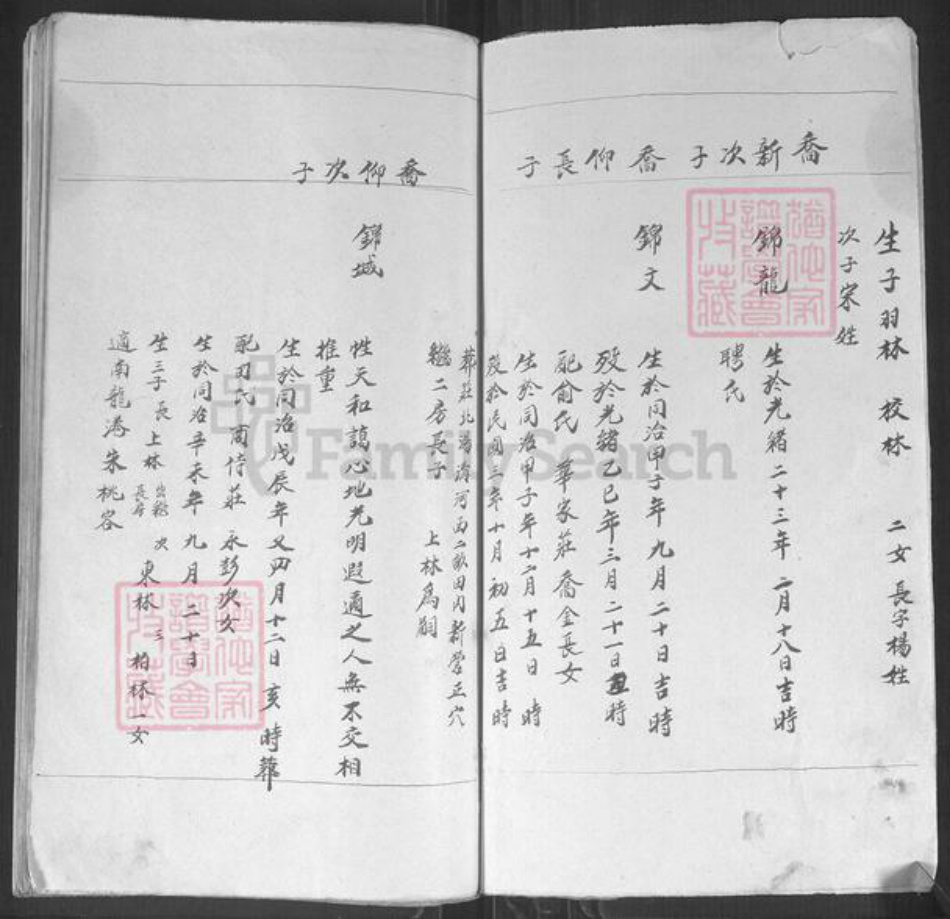 生子羽林 校林 二女長字楊姓
次子宋姓
喬新次子
錦龍
生於光緒二十三年二月十八日吉時
聘氏
喬仰長子
錦文
生於同治甲子年九月二十日吉時
歿於光緒乙巳年三月二十一日時
配俞氏 華家莊喬金長女
生於同治甲子年十二月十五日 時
歿於民國三年十月初五日吉時
葬莊北 河西二畝田內新營正穴
繼二房長子 上林為嗣
喬仰次子
錦城
性天和藹心地光明遐邇之人無不交相
推重
生於同治戊辰年又四月十二日亥時葬
配刃氏 莊 永彭次女
生於同治辛未年九月二十日
生三子長上林出繼長房 次東林 三柏林一女
適南龍港朱桃容
猶他家譜學會收藏
猶他家譜學會收藏
FamilySearch